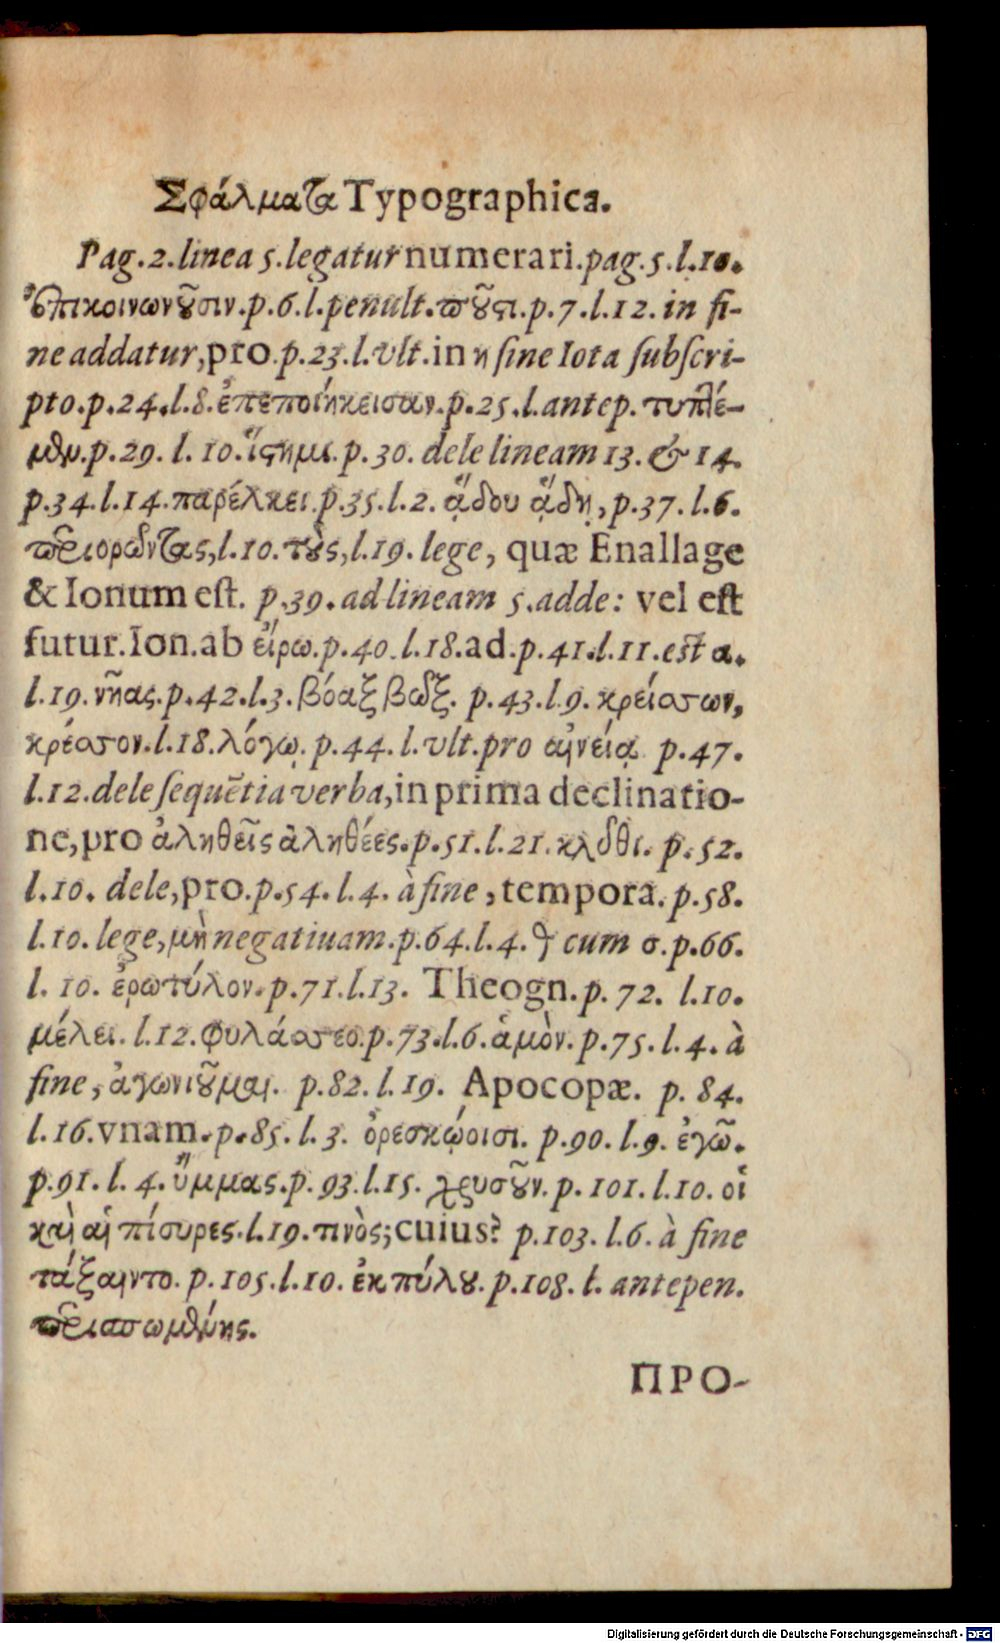 Σφάλματα Typographica.
Pag. 2. linea 5. legatur numerari. pag. 5. l. 10.
ἐπικοινωνοῦσιν. p. 6. l. penult. ποῦστι. p. 7. l. 12. in fi-
ne addatur, pro. p. 23. l. vlt. in η sine Iota subscri-
pto. p. 24. l. 8. ἐπεποιήκεισαν. p. 25. l. antep. τυπλέ-
μθμ. p. 29. l. 10. ἵστημι. p. 30. dele lineam 13. & 14.
p. 34. l. 14. παρέλκει. p. 35. l. 2. ᾅδου ᾅδῃ, p. 37. l. 6.
περιορῶντας, l. 10. τοὺς, l. 19. lege, quæ Enallage
& Ionum est. p. 39. ad lineam 5. adde: vel est
futur. Ion. ab εἴρω. p. 40. l. 18. ad. p. 41. l. 11. est α.
l. 19. νῆας. p. 42. l. 3. βόαξ βῶξ. p. 43. l. 9. κρείσσων,
κρέσσον. l. 18. λόγῳ. p. 44. l. vlt. pro αἰνείᾳ p. 47.
l. 12. dele sequẽtia verba, in prima declinatio-
ne, pro ἀληθεῖς ἀληθέες. p. 51. l. 21. κλῦθι. p. 52.
l. 10. dele, pro. p. 54. l. 4. à fine, tempora. p. 58.
l. 10. lege, μὴ negatiuam. p. 64. l. 4. θ cum σ. p. 66.
l. 10. ἐρωτύλον. p. 71. l. 13. Theogn. p. 72. l. 10.
μέλει. l. 12. φυλάσσεο. p. 73. l. 6. ἁμὸν. p. 75. l. 4. à
fine, ἀγωνιοῦμαι. p. 82. l. 19. Apocopæ. p. 84.
l. 16. vnam. p. 85. l. 3. ὀρεσκῴοισι. p. 90. l. 9. ἐγῶ.
p. 91. l. 4. ὔμμας. p. 93. l. 15. χρυσοῦν. p. 101. l. 10. οἱ
καὶ αἱ πίσυρες. l. 19. τινὸς; cuius? p. 103. l. 6. à fine
τάξαιντο. p. 105. l. 10. ἐκ πύλου. p. 108. l. antepen.
περισσωμένης.
ΠΡΟ-
Digitalisierung gefördert durch die Deutsche Forschungsgemeinschaft - DFG